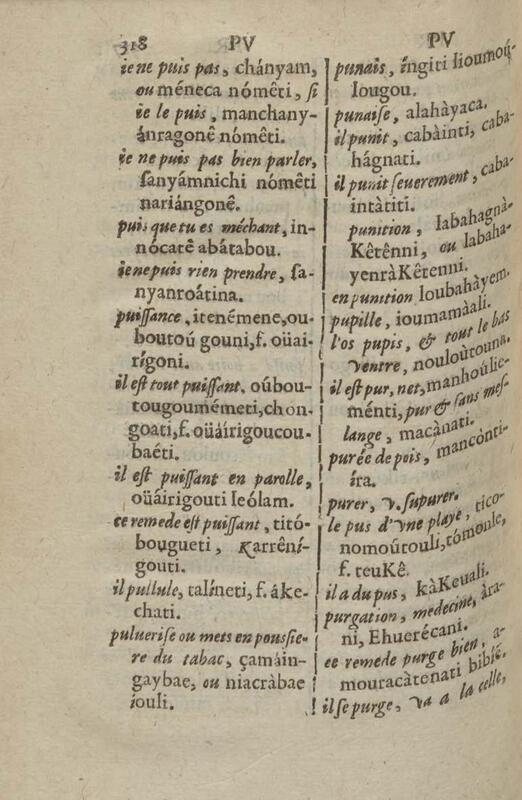 318 PV PV
ie ne puis pas, chányam,
ou méneca nómêti, si
ie le puis, manchany-
ánragonê nómêti.
ie ne puis pas bien parler,
sanyámnichi nómêti
nariángonê.
puis que tu es méchant, in-
nócatê abátabou.
ie ne puis rien prendre, sa-
nyanroátina.
puissance, itenémene, ou-
boutoú gouni, f. oüai-
rígoni.
il est tout puissant, oúbou-
tougoumémeti, chon-
goati, f. oüáirigoucou-
baéti.
il est puissant en parolle,
oüáirigouti Ieólam.
ce remede est puissant, titó-
bougueti, Karrêní-
gouti.
il pullule, talíneti, f. áke-
chati.
puluerise ou mets en poussie-
re du tabac, çamáin-
gaybae, ou niacràbae
íouli.
punais, íngiti Iioumoú-
Iougou.
punaise, alahàyaca.
il punit, cabàinti, caba-
hágnati.
il punit seuerement, caba-
intàtiti.
punition, Iabahagnà-
Kêtênni, ou Iabaha-
yenràKêtenni.
en punition Ioubahàyem.
pupille, ioumamàali.
l'os pupis, & tout le bas
ventre, nouloùtouna.
il est pur, net, manhoulie-
ménti, pur & sans mes-
lange, macànati.
purée de pois, mancònti-
íra.
purer, v. supurer.
le pus d'vne playe, tico-
nomoútouli, tómonle,
f. teuKê.
il a du pus, kàKeuali.
purgation, medecine, àra-
ni, Ehuerécani.
ce remede purge bien, a-
mouracàtenati bibié.
il se purge, va a la celle,